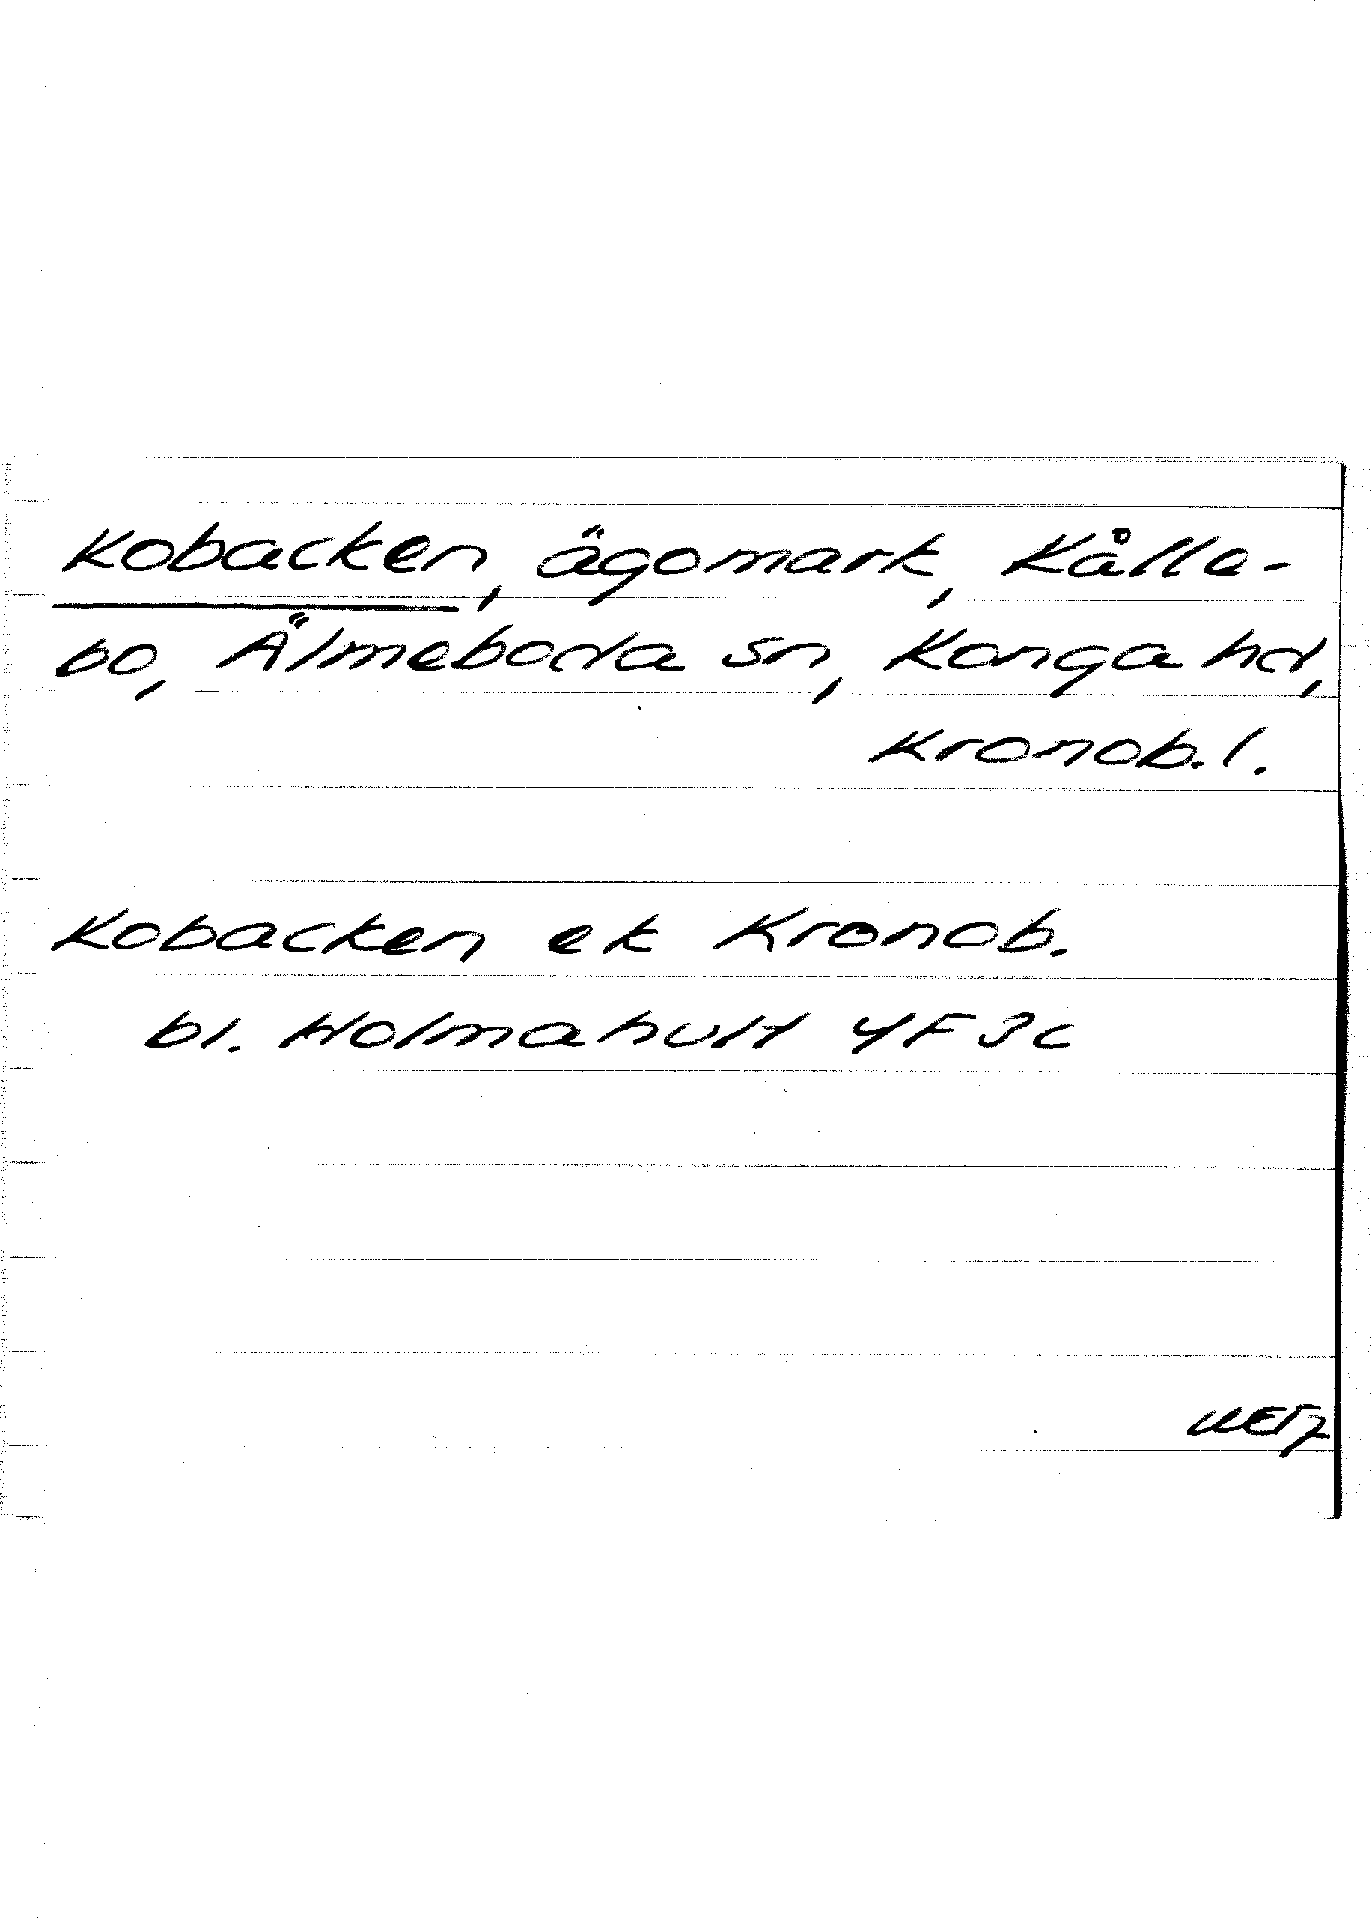 Kobacken, ägomark, Kålle-
bo, Älmeboda sn, Konga hd,
Kronob. l.
Kobacken ek Kronob.
bl. Holmahult 4F 3c